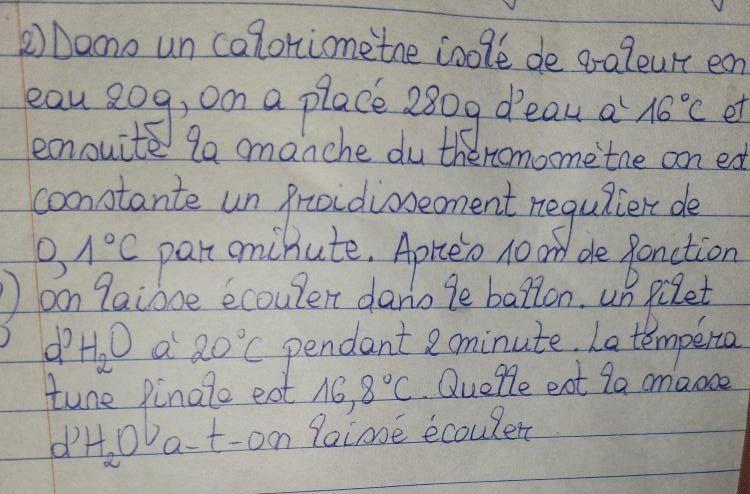 2) Dans un calorimètre isolé de valeur en
eau 20g, on a placé 280g d'eau à 16°C et
ensuite la manche du thèrmomètre on est
constante un froidissement regulier de
0,1°C par minute. Après 10 m de fonction
on laisse écouler dans le ballon. un filet
d'H₂O à 20°C pendant 2 minute. La tempéra
ture finale est 16,8°C. Quelle est la masse
d'H₂O a-t-on laissé écouler